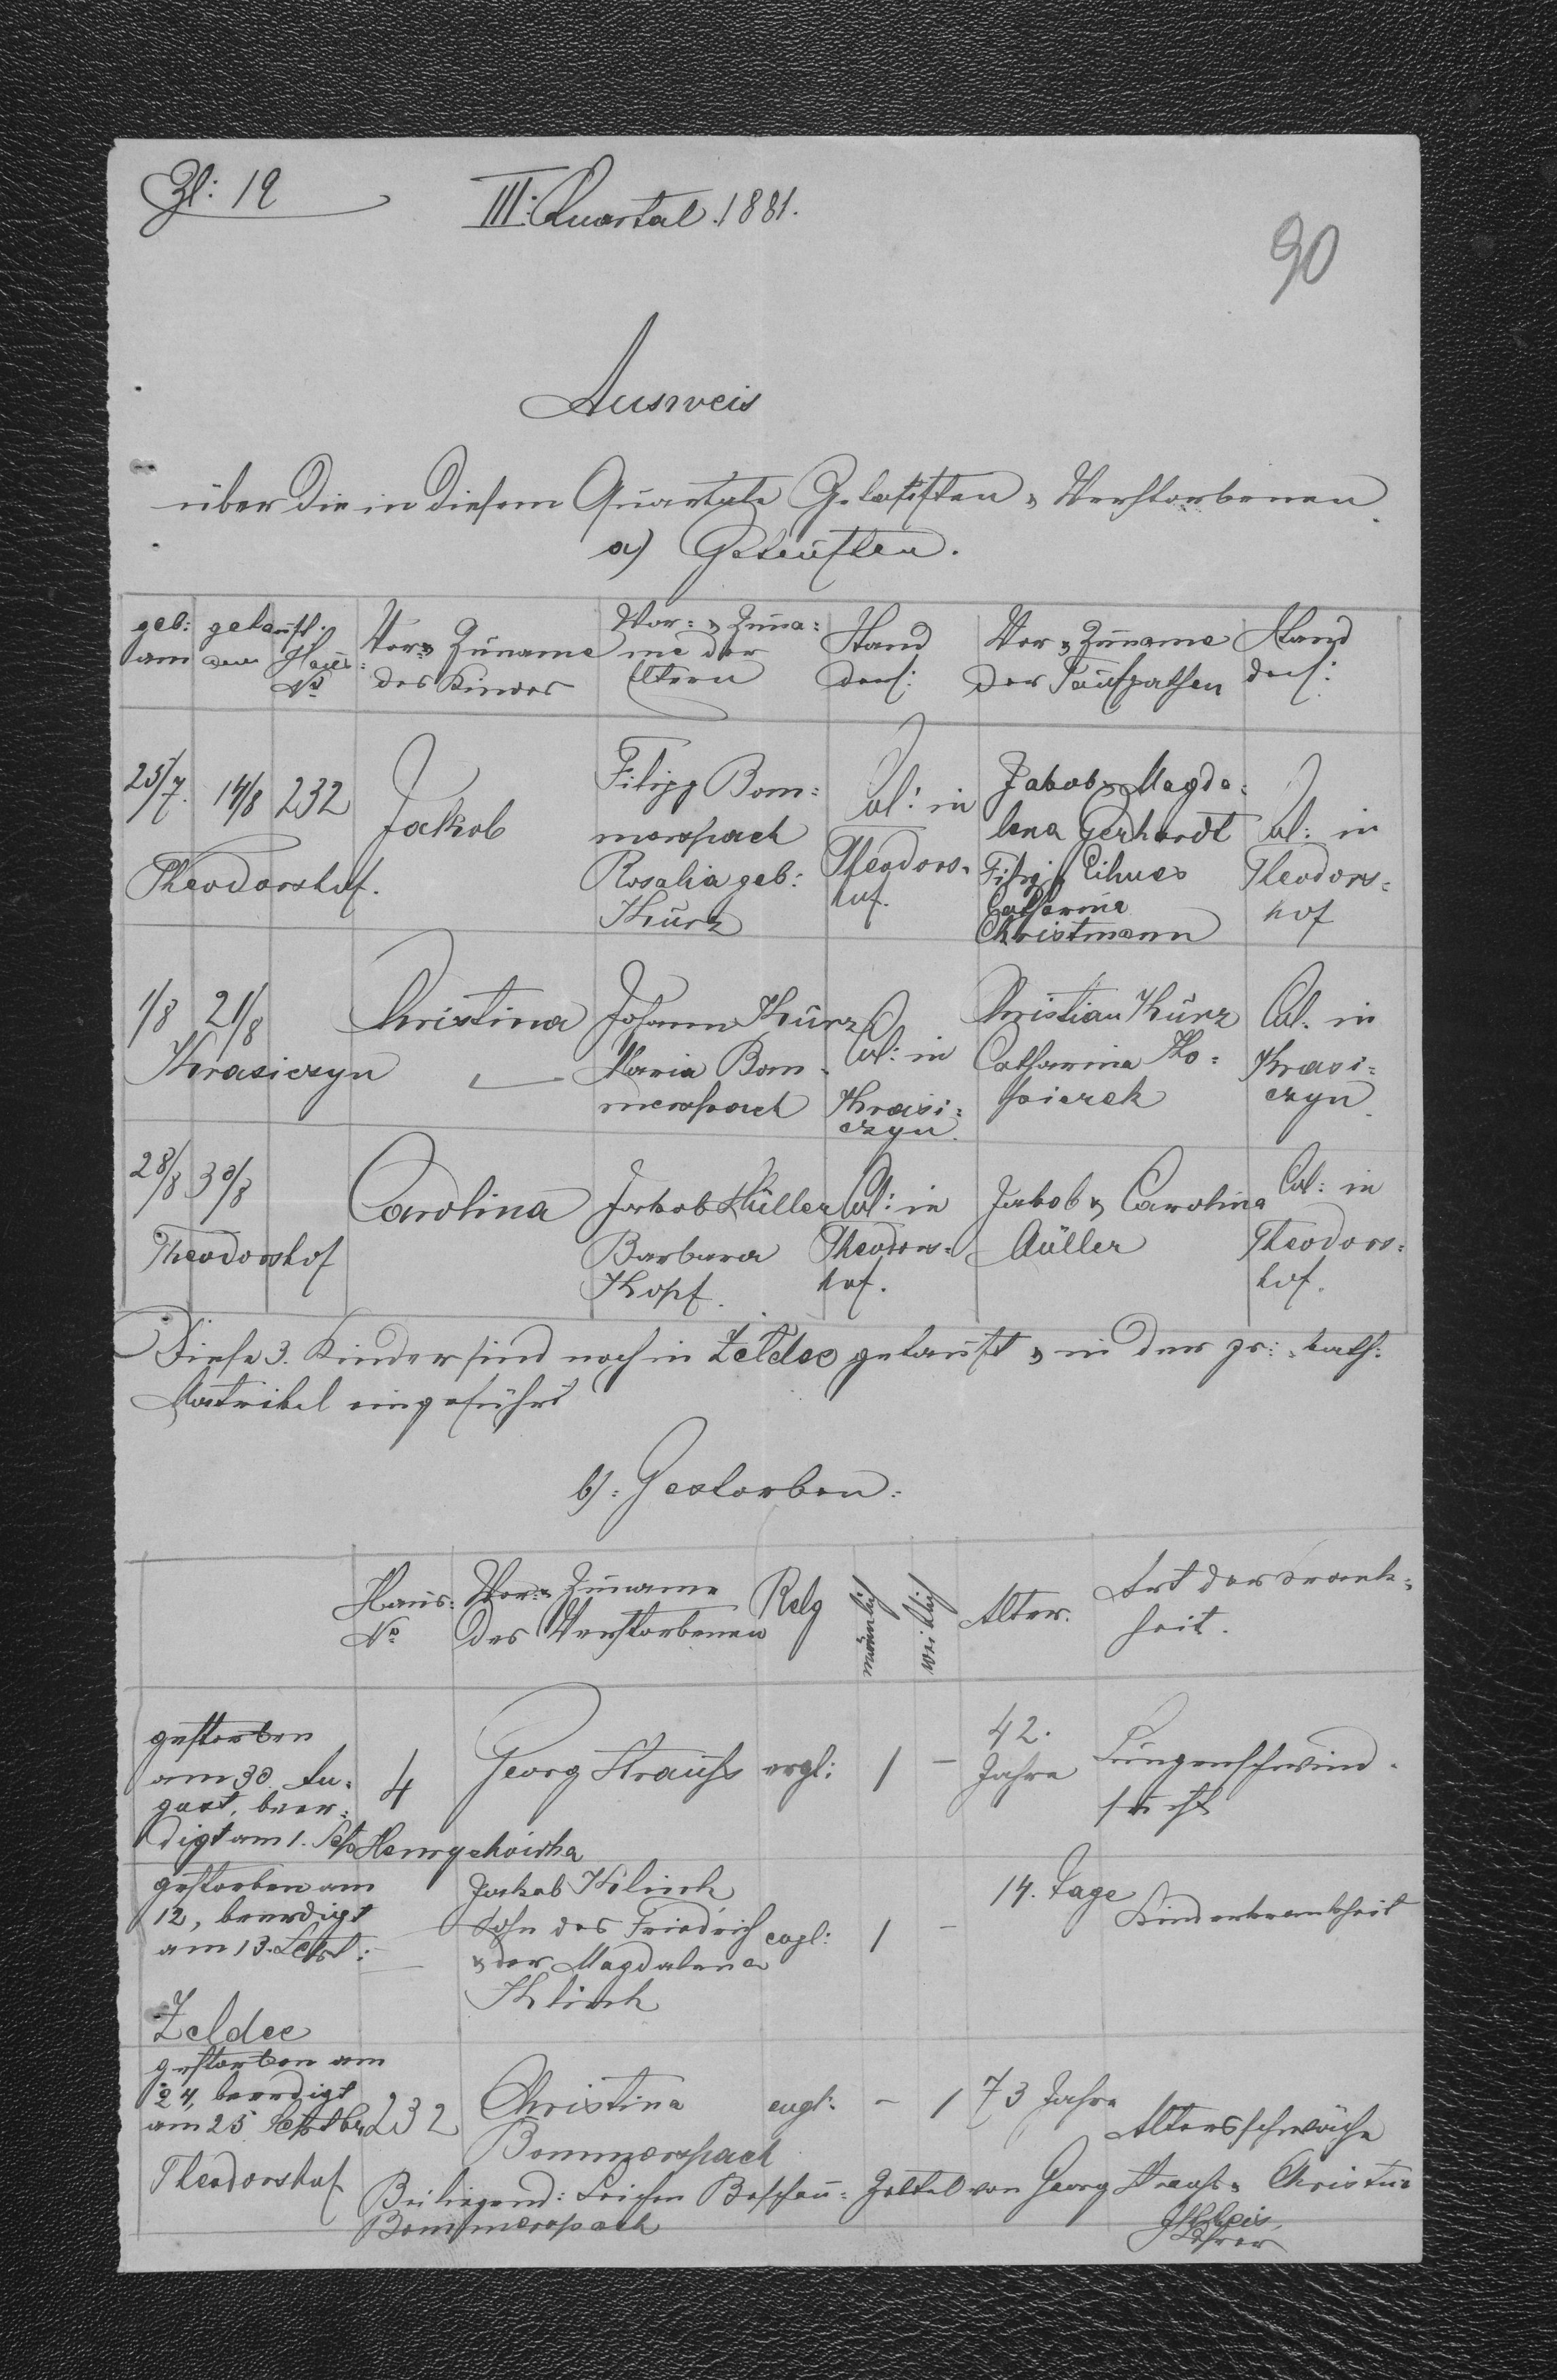 Zl: 19
III: Quartal. 1881.
90
Ausweis
über die in diesem Quartale Getauften & Verstorbenen.
a) Getauften.
geb: am | getauft. am | Haus: No | Vor & Zuname des Kindes | Vor: & Zuna: me der Eltern | Stand ders: | Vor & Zuname der Taufpathen | Stand ders:
25/7. | 14/8 | 232 | Jakob | Filipp Bom: merspach Rosalia geb: Kurz | Col: in Theodors: hof. | Jakob & Magda: lena Gerhardt Filip Catharina Christmann | Col: in Theodors: hof
Theodorshof.
1/8 | 21/8 | Christina | Johann Kurz Maria Bom: merspach | Col: in Krasi: czyn. | Christian Kurz Catharina Ko: pierek | Col. in Krasi: czyn.
Krasiczyn
28/8 | 30/8 | Carolina | Jakob Müller Barbara Kopf. | Col: in Theodors: hof. | Jakob & Carolina Müller | Col: in Theodors: hof.
Theodorshof
Diese 3. Kinder sind noch in Zeldec getauft & in der gr: kath:
Matrikel eingeführt
b): Gestorben:
Haus: No | Vor & Zuname des Verstorbenen | Relg | männlich | weiblich | Alter. | Art der Krank: heit.
gestorben am 30. Au: gust, beer: digt am 1. Sept | 4 | Georg Strauss | evgl: | 1 | – | 42. Jahre | Lungenschwind: sucht
gestorben am 12, beerdigt am 13. Sept: | Jakob Klink Sohn des Friedrich & der Magdalena Klink | evgl: | 1 | – | 14. Tage | Kinderkrankheit
Zeldec
gestorben am 24, beerdigt am 25 Septbr | 232 | Christina Bommerspach | evgl: | – | 1 | 73 Jahre | Altersschwäche
Theodorshof
Beiliegend: Leichen Beschau: Zettel von Georg Strauss & Christina
Bommerspach
Lehrer